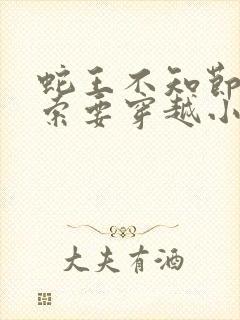 蛇王不知节
索要穿越小
大夫有酒